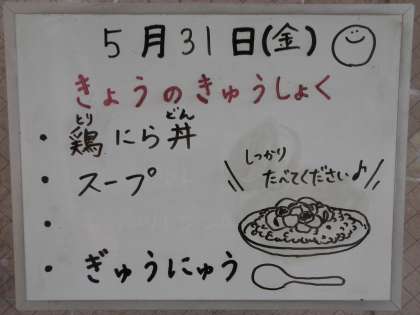 5月31日(金)
きょうのきゅうしょく
・鶏にら丼
とり どん
・スープ
・
・ぎゅうにゅう
しっかり
たべてください♪